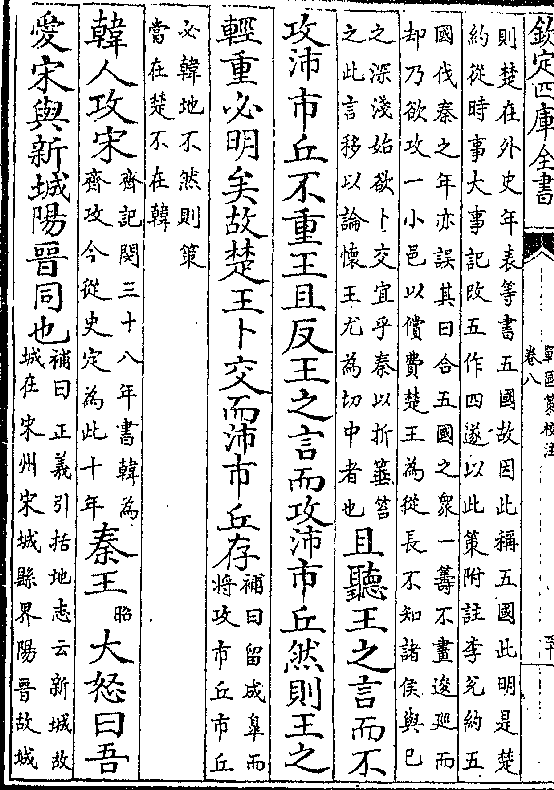 欽定四庫全書
卷八
則楚在外史年表等書五國故因此稱五國此明是楚
約從時事大事記改五作四遂以此策附註李兊約五
國伐秦之年亦誤其曰合五國之衆一籌不畫逡巡而
却乃欲攻一小邑以償費楚王為從長不知諸侯與已
之深淺始欲卜交宜乎秦以折箠笞
之此言移以論懷王尤為切中者也
且聽王之言而不
攻沛市丘不重王且反王之言而攻沛市丘然則王之
輕重必明矣故楚王卜交而沛市丘存
補曰留成臯而
將攻市丘市丘
必韓地不然則策
當在楚不在韓
韓人攻宋
齊記閔三十八年書韓為
齊攻今從史定為此十年
秦王
昭
大怒曰吾
愛宋與新城陽晉同也
補曰正義引括地志云新城故
城在宋州宋城縣界陽晉故城